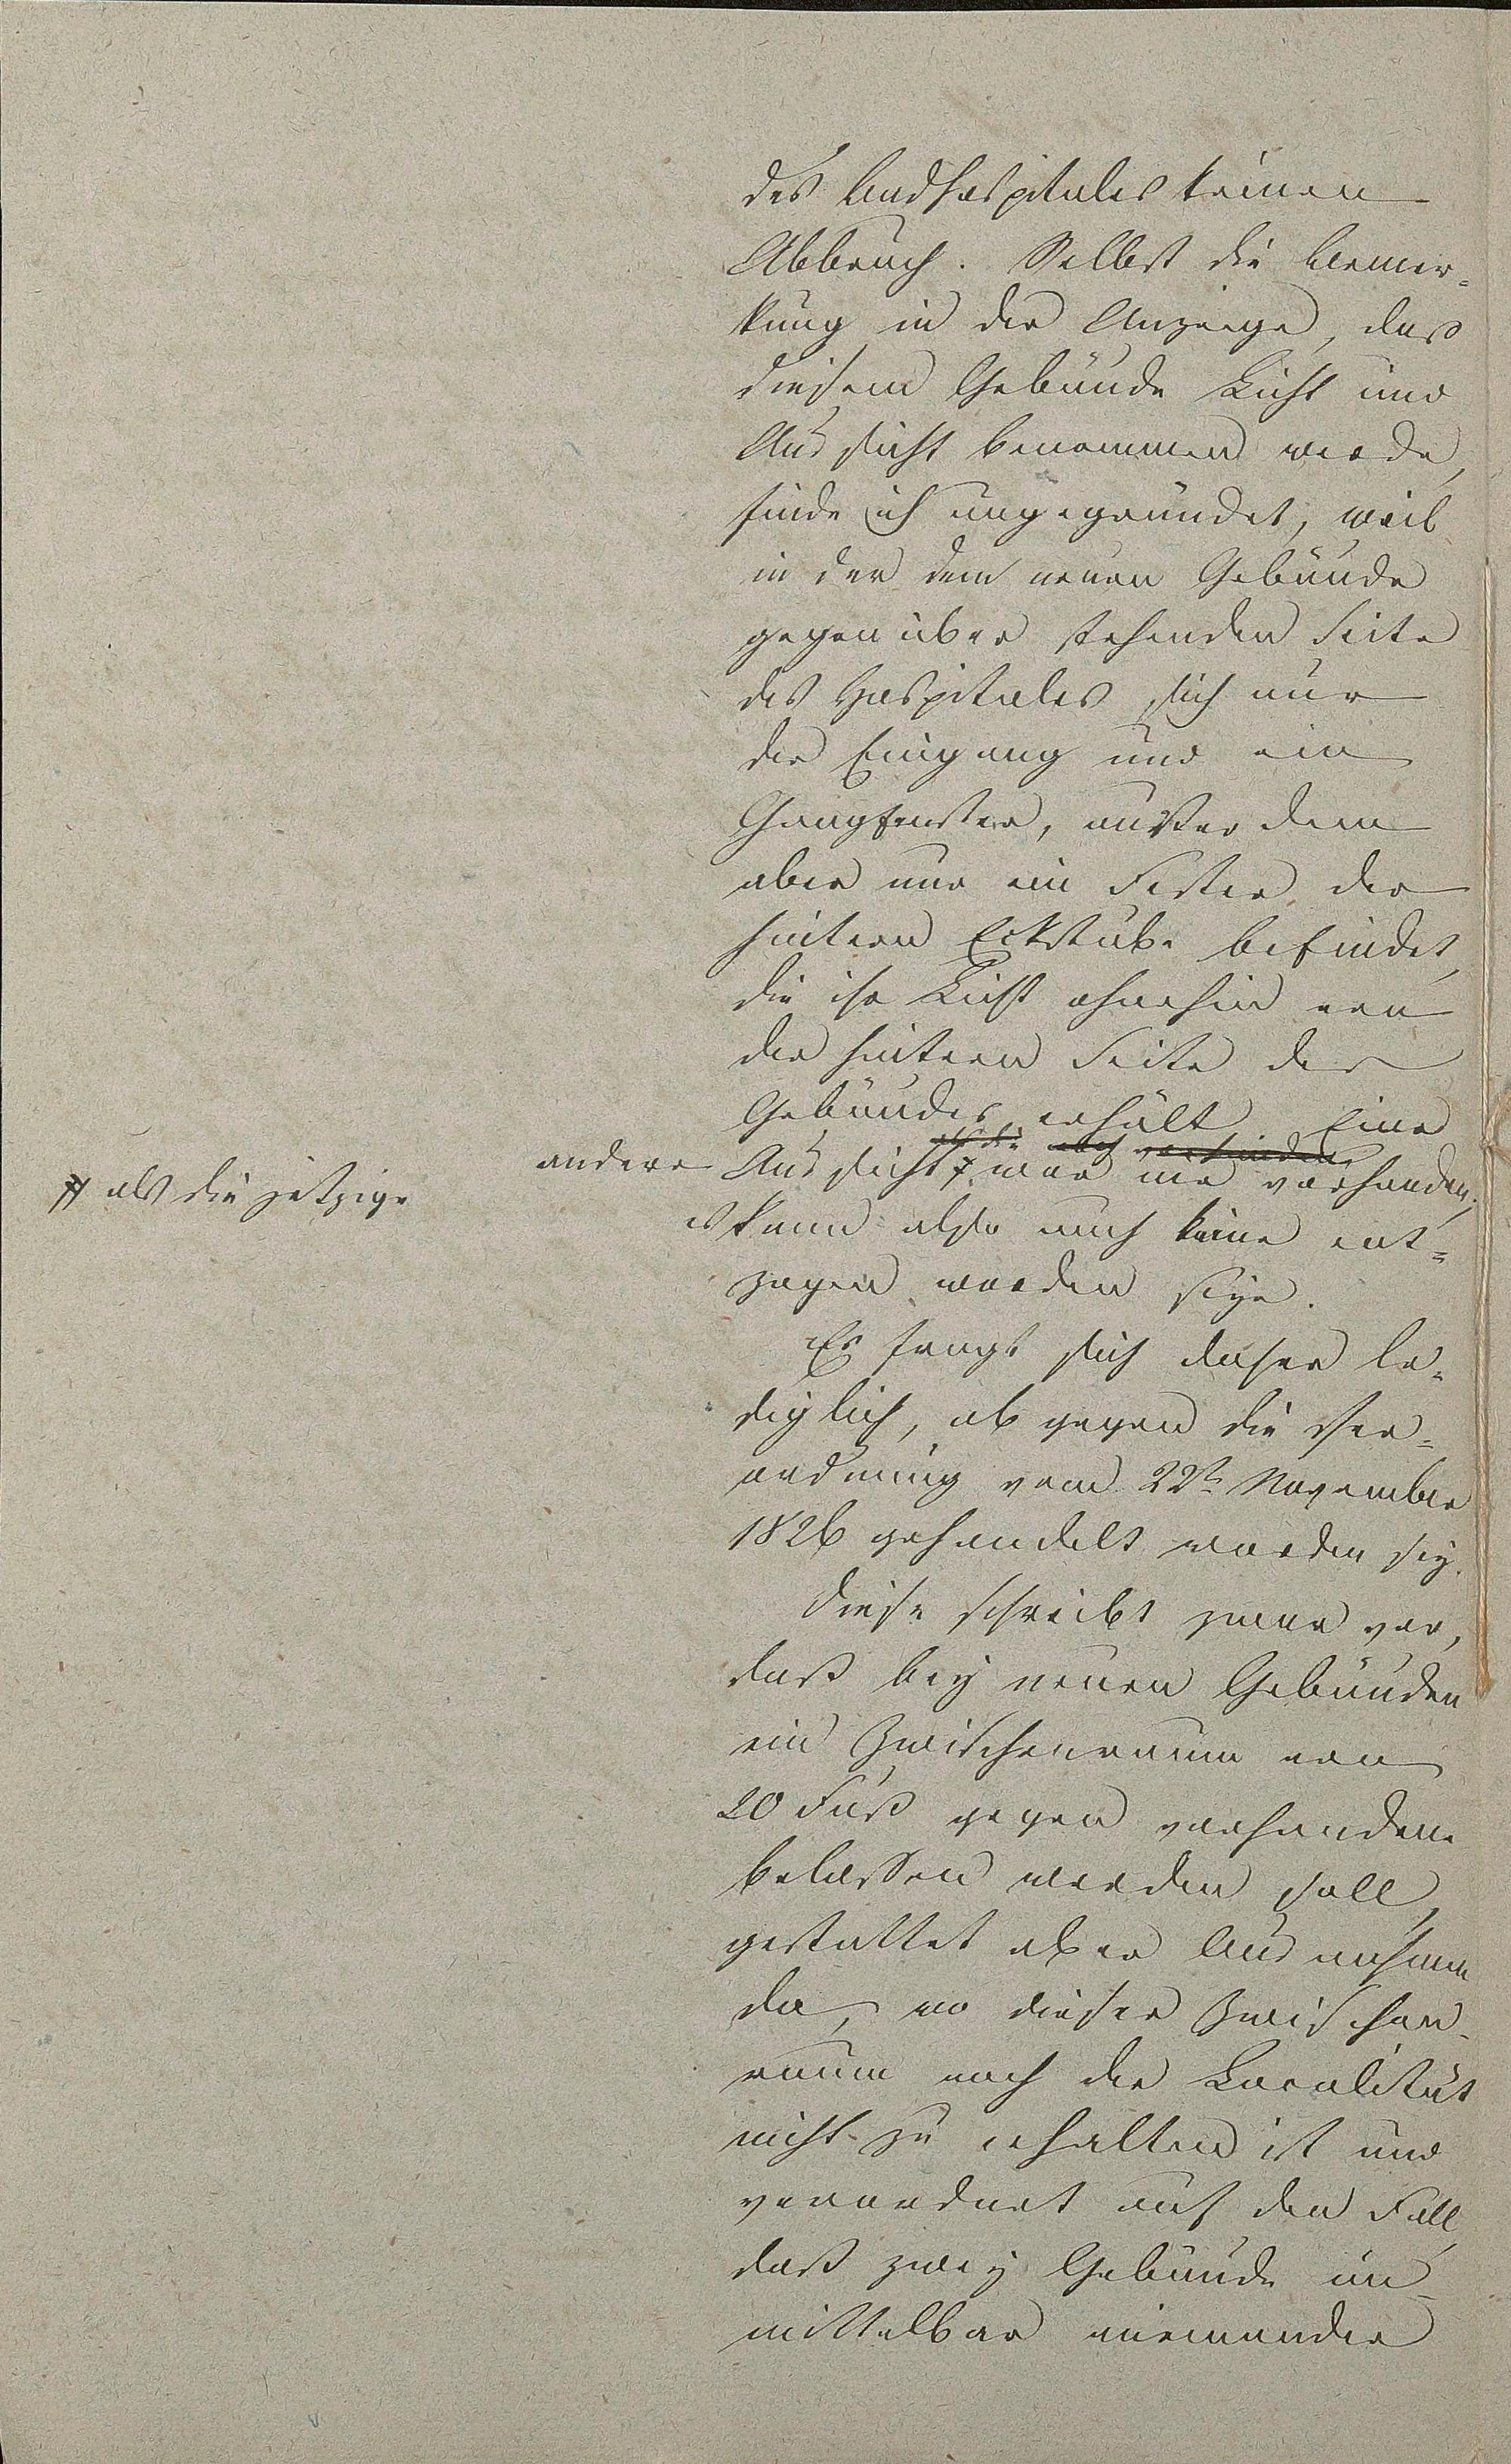 des Badhospitales keinen
Abbruch. Selbst die Bemer-
kung in der Anzeige, daß
diesem Gebäude Licht und
Aussicht benommen werde,
finde ich ungegründet, weil
in der dem neuen Gebäude
gegenüber stehenden Seite
des Hospitales sich nur
der Eingang und ein
Gangfenster, außer dem
aber nur ein Fester der
hintern Eckstube befindet,
die ihr Licht ohnehin von
der hintern Seite des
Gebäudes erhält. Eine
als die vorhanden
andere Aussicht # war nie vorhanden;
# als die jetzige
es kann also auch keine ent-
zogen worden seye.
Es fragt sich daher le-
diglich, ob gegen die Ver-
ordnung vom 22t November
1826 gehandelt worden sey.
Diese schreibt zwar vor,
daß bey neuen Gebäuden
ein Zwischenraum von
20 Fuß gegen vorhandene
belassen werden soll,
gestattet aber Ausnahmen
da, wo dieser Zwischen-
raum nach der Localität
nicht zu erhalten ist und
verordnet auf den Fall,
daß zwey Gebäude un-
mittelbar aneinander